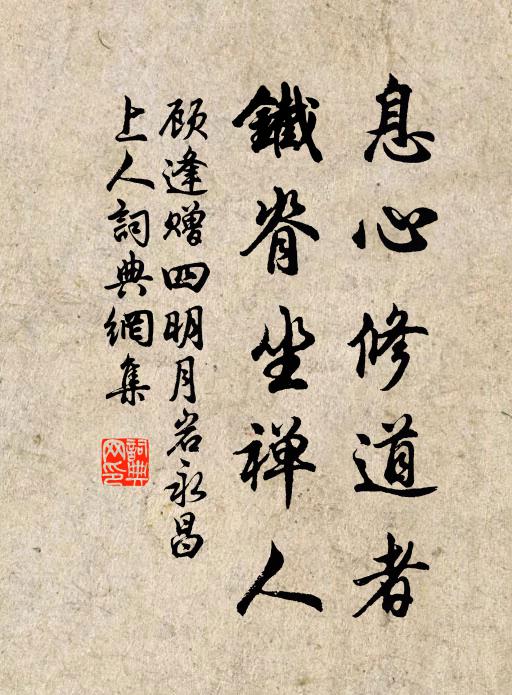 息心修道者
鐵脊坐禅人
顾逢赠四明月岩永昌
上人詞典網集
詞典網印